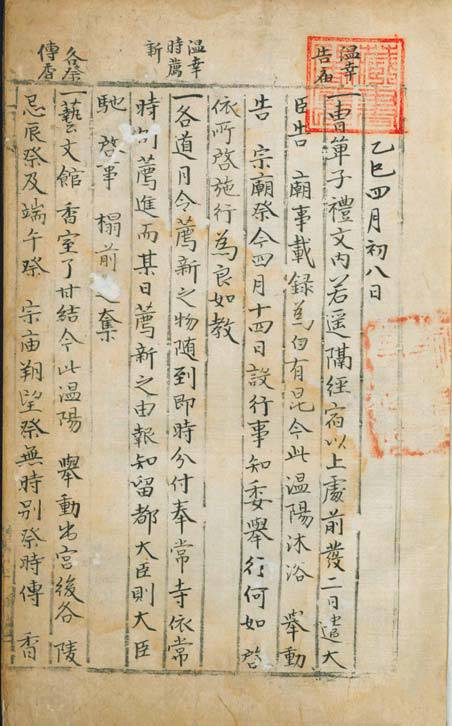 乙巳四月初八日
温幸
告廟
一曹單子禮文內若遥隔經宿以上處前發二日遣大
臣告 廟事載録為白有昆今此温陽沐浴 舉動
告 宗廟祭今四月十四日設行事知委舉行何如 啓
依所啓施行為良如教
温幸
時薦
新
一各道月令薦新之物随到即時分付奉常寺依常
時 薦進而某日薦新之由報知留都大臣則大臣
馳 啓事 榻前 奪
各祭
傳香
一藝文館 香室了甘結今此温陽 舉動出宮後各陵
忌辰祭及端午祭 宗庙朔望祭無時别祭時傳 香